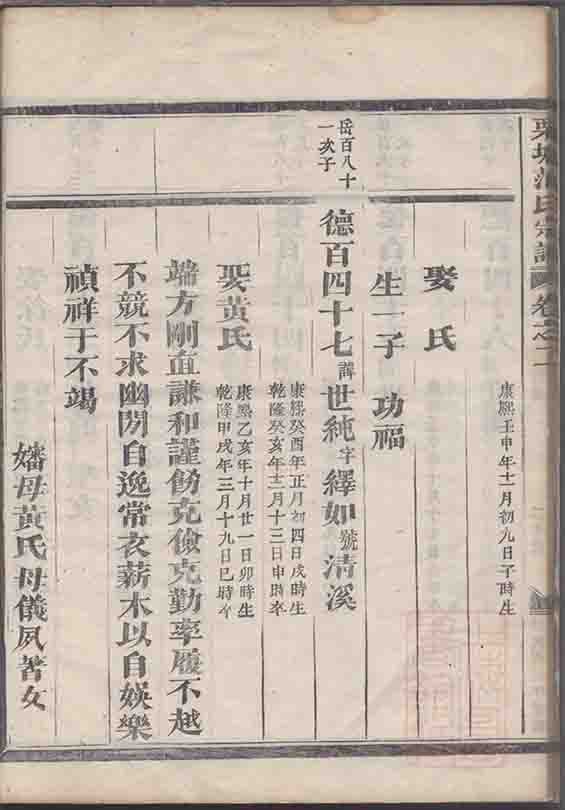 宗譜 卷之二
康熙壬申年十一月初九日子時生
娶 氏
生一子 功福
岳百八十一次子
德百四十七諱世純字繹如號清溪
康熙癸酉年正月初四日戌時生
乾隆癸亥年十二月十三日申時卒
娶黃氏
康熙乙亥年十月廿一日卯時生
乾隆甲戌年三月十九日巳時卒
端方剛直謙和謹飭克儉克勤率履不越
不競不求幽閒自逸常衣薪木以自娛樂
禎祥于不竭
嬸母黃氏母儀夙著女